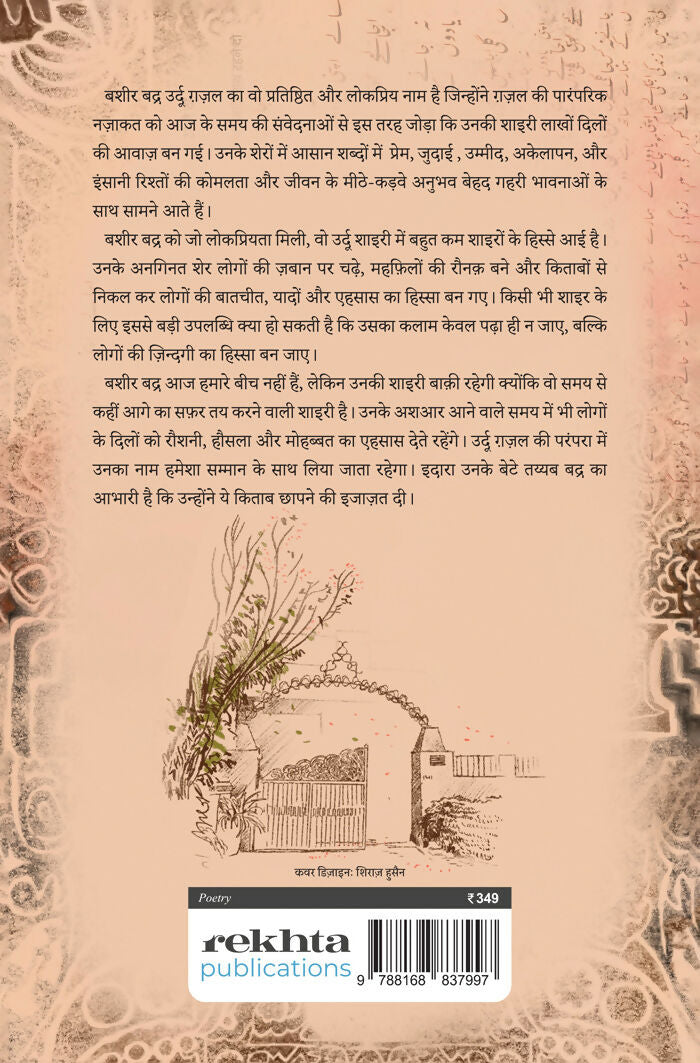 बशीर बद्र उर्दू ग़ज़ल का वो प्रतिष्ठित और लोकप्रिय नाम है जिन्होंने ग़ज़ल की पारंपरिक
नज़ाकत को आज के समय की संवेदनाओं से इस तरह जोड़ा कि उनकी शाइरी लाखों दिलों
की आवाज़ बन गई। उनके शेरों में आसान शब्दों में प्रेम, जुदाई , उम्मीद, अकेलापन, और
इंसानी रिश्तों की कोमलता और जीवन के मीठे-कड़वे अनुभव बेहद गहरी भावनाओं के
साथ सामने आते हैं।
बशीर बद्र को जो लोकप्रियता मिली, वो उर्दू शाइरी में बहुत कम शाइरों के हिस्से आई है।
उनके अनगिनत शेर लोगों की ज़बान पर चढ़े, महफ़िलों की रौनक़ बने और किताबों से
निकल कर लोगों की बातचीत, यादों और एहसास का हिस्सा बन गए। किसी भी शाइर के
लिए इससे बड़ी उपलब्धि क्या हो सकती है कि उसका कलाम केवल पढ़ा ही न जाए, बल्कि
लोगों की ज़िन्दगी का हिस्सा बन जाए।
बशीर बद्र आज हमारे बीच नहीं हैं, लेकिन उनकी शाइरी बाक़ी रहेगी क्योंकि वो समय से
कहीं आगे का सफ़र तय करने वाली शाइरी है। उनके अशआर आने वाले समय में भी लोगों
के दिलों को रौशनी, हौसला और मोहब्बत का एहसास देते रहेंगे। उर्दू ग़ज़ल की परंपरा में
उनका नाम हमेशा सम्मान के साथ लिया जाता रहेगा। इदारा उनके बेटे तय्यब बद्र का
आभारी है कि उन्होंने ये किताब छापने की इजाज़त दी।
कवर डिज़ाइन: शिराज़ हुसैन
Poetry ₹ 349
rekhta
publications
9 788168 837997